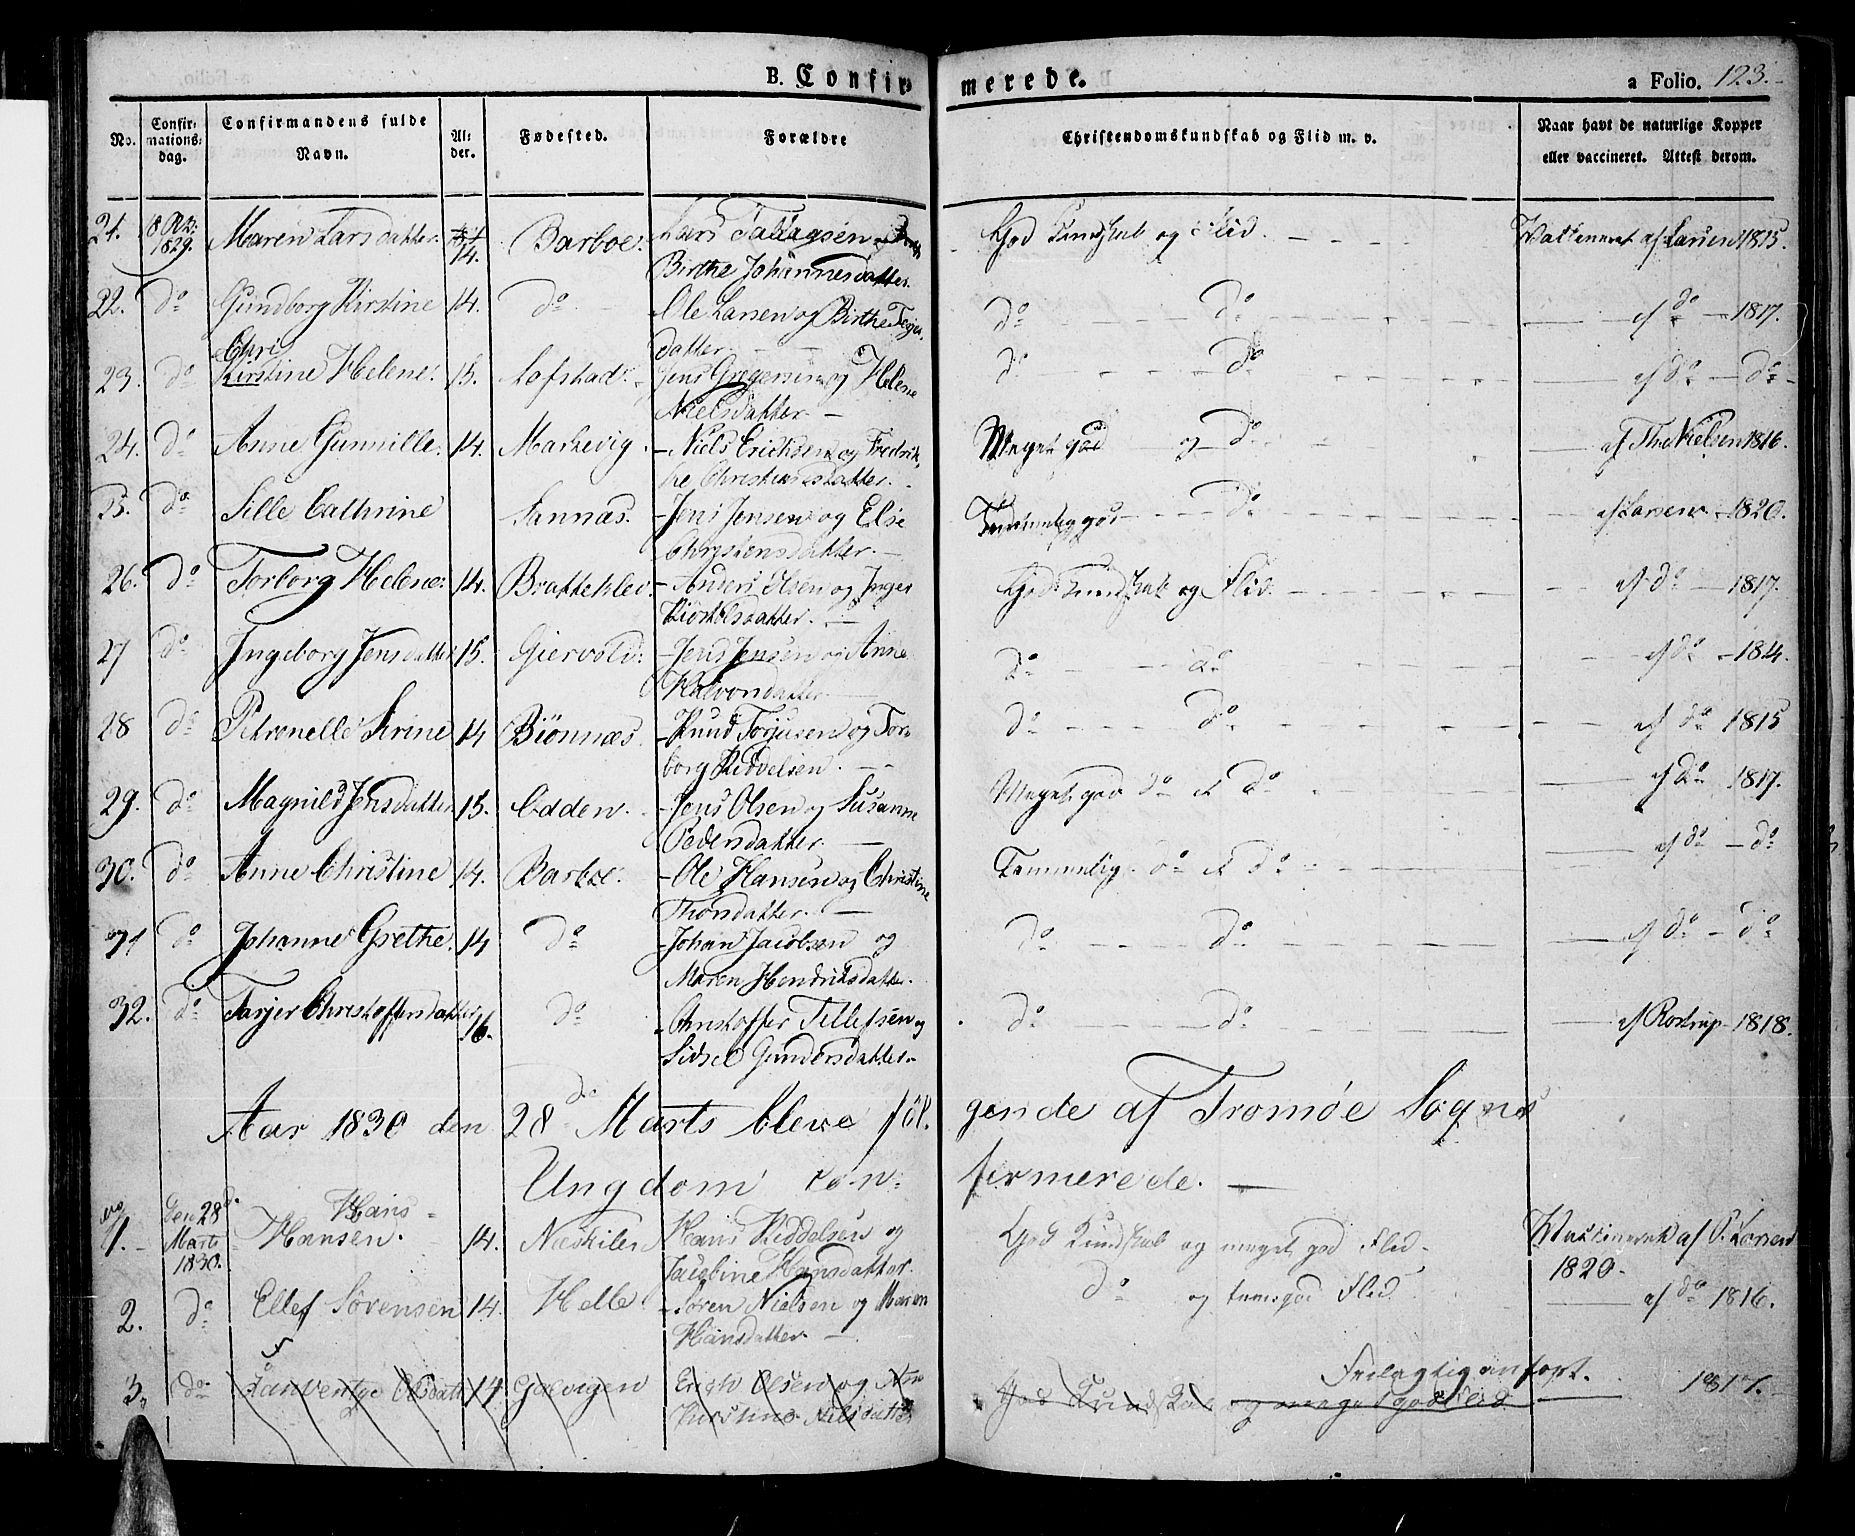 B. Confirmerede.
a Folio. 123.
No. Confirmationsdag. Confirmandens fulde Navn. Alder. Fødested. Forældre Christendomskundskab og Flid m. v. Naar havt de naturlige Kopper eller vaccineret. Attest derom.
21. 1829. Maren Larsdatter. 14. Barboe. Lars Tallagsen God Kundskab og Flid. Vaccineret af Larsen 1815
Birthe Johannesdatter.
22. do Gundborg Kirstine 14. do Ole Larsen og Birthe do do af do 1817.
datter.
Chri
23. do Kirstine Helene. 15. Lofstad Jens Gregersen og Helene do do af do do
Nielsdatter
24. do Anne Gunnille. 14. Markevig. Niels Erichsen og Fredrik- Meget god og do af Nielsen 1816.
ke Christensdatter.
25. do Sille Cathrine Sannæs. Jens Jensen og Else Temmelig god do af Larsen 1820.
Christensdatter.
26. do Torborg Helene. 14. Brattekley Anders Olsen og Inger God Kundskab og Flid. af do 1817.
27 do Ingeborg Jensdatter 15. Giervold. Jens Jensen og Anne do do af do 1814.
Halvordatter
28 do Petronelle Serine 14 Biönnæs Knud Torjusen og Tor- do do af do 1815
borg
29. do Magnild Jensdatter 15. Odden. Jens Olsen og Susanne Meget god do & do af do 1817.
Pedersdatter.
30. do Anne Christine 14. Barboe. Ole Hansen og Christine Temmelig do & do af do do
Thorsdatter.
31 do Johanne Grethe. 14 do Johan Jacobsen og do do af do do
Maren Hendriksdatter.
32. do Tarjer Christoffersdatter 16. do Christoffer Tellefsen og do do af Rostrup 1818.
Sidsel Gundersdatter.
Aar 1830 den 28de Marts bleve fölgende af Tromøe Sogns
Ungdom konfirmerede.
No 1. Den 28de Marts 1830. Hans Hansen. 14. Næskilen Hans Reddelsen og God Kundskab og meget god Flid. Vaccineret af P. Larsen
Jacobine Hansdatter. 1820.
2. do Ellef Sörensen 14. Helle Sören Nielsen og Maren do og temgod Flid af do 1816.
Hansdatter.
Feilagtig anfört.
3. do Olsdatter 14 Galvigen Erich Olsen og Ane God Kundskab og meget god Flid 1817.
Kirstine Nilsdatter